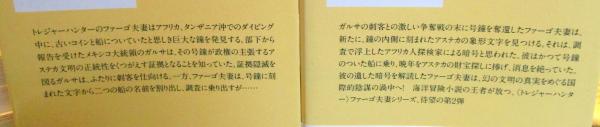 トレジャーハンターのファーゴ夫妻はアフリカ、タンザニア沖でのダイビング
中に、古いコインと船についていたと思しき巨大な鐘を発見する。部下から
報告を受けたメキシコ大統領のガルサは、その号鐘が政権の主張するア
ステカ文明の正統性をくつがえす証拠となることを知っていた。証拠隠滅を
図るガルサは、ふたりに刺客を仕向ける。一方、ファーゴ夫妻は、号鐘に刻
まれた文字から二つの船の名前を割り出し、調査に乗り出すが……
ガルサの刺客との激しい争奪戦の末に号鐘を奪還したファーゴ夫妻は、
新たに、鐘の内側に刻まれたアステカの象形文字を見つける。それは、調
査で浮上したアフリカ人探検家による暗号と思われた。彼はかつて号鐘
のついた船に乗り、晩年をアステカの財宝探しに捧げ、消息を絶っていた。
彼の遺した暗号を解読したファーゴ夫妻は、幻の文明の真実をめぐる国
際的陰謀の渦中へ! 海洋冒険小説の王者が放つ、〈トレジャーハン
ター〉ファーゴ夫妻シリーズ、待望の第2弾